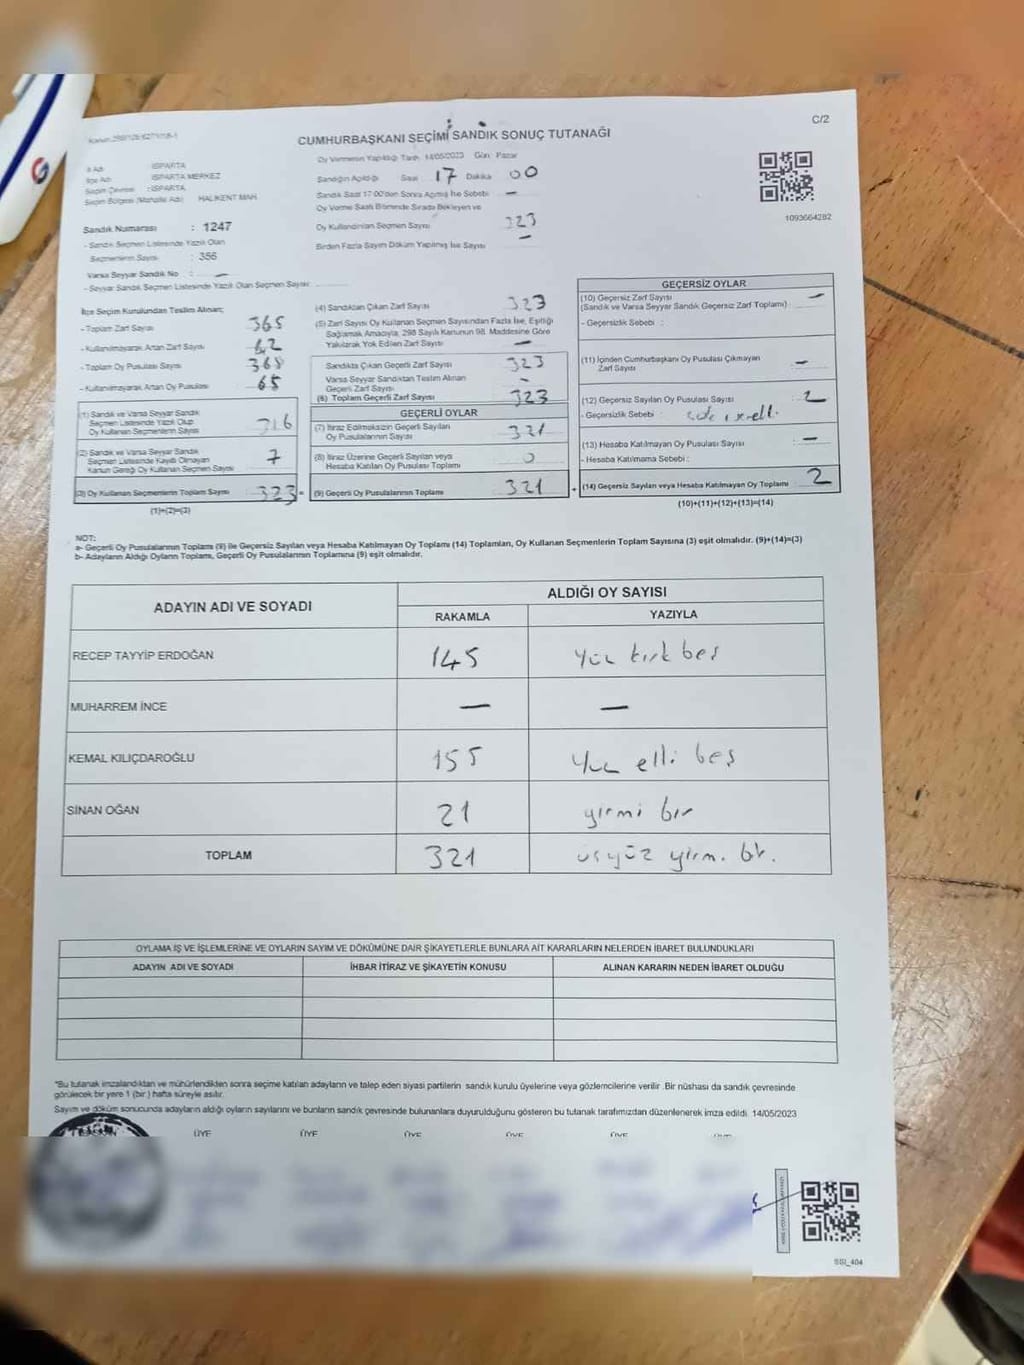 C/2
CUMHURBAŞKANI SEÇİMİ SANDIK SONUÇ TUTANAĞI
Oy Vermenin Yapıldığı Tarih 14/05/2023 Gün Pazar
İl Adı : ISPARTA
İlçe Adı : ISPARTA MERKEZ
Seçim Çevresi : ISPARTA
Seçim Bölgesi (Mahalle Adı) HALIKENT MAH.
Sandık Numarası : 1247
- Sandık Seçmen Listesinde Yazılı Olan
Seçmenlerin Sayısı : 356
Varsa Seyyar Sandık No : —
- Seyyar Sandık Seçmen Listesinde Yazılı Olan Seçmen Sayısı:
Sandığın Açıldığı Saat 17 Dakika 00
Sandık Saat 17:00'den Sonra Açılmış İse Sebebi —
Oy Verme Saati Bitiminde Sırada Bekleyen ve
Oy Kullandırılan Seçmen Sayısı 323
Birden Fazla Sayım Döküm Yapılmış İse Sayısı —
1093664282
İlçe Seçim Kurulundan Teslim Alınan;
- Toplam Zarf Sayısı 365
- Kullanılmayarak Artan Zarf Sayısı 42
- Toplam Oy Pusulası Sayısı 368
- Kullanılmayarak Artan Oy Pusulası 65
(1) Sandık ve Varsa Seyyar Sandık
Seçmen Listesinde Yazılı Olup
Oy Kullanan Seçmenlerin Sayısı 316
(2) Sandık ve Varsa Seyyar Sandık
Seçmen Listesinde Kayıtlı Olmayan
Kanun Gereği Oy Kullanan Seçmen Sayısı 7
(3) Oy Kullanan Seçmenlerin Toplam Sayısı 323 =
(1)+(2)=(3)
(4) Sandıktan Çıkan Zarf Sayısı 323
(5) Zarf Sayısı Oy Kullanan Seçmen Sayısından Fazla İse, Eşitliği
Sağlamak Amacıyla, 298 Sayılı Kanunun 98. Maddesine Göre
Yakılarak Yok Edilen Zarf Sayısı —
Sandıkta Çıkan Geçerli Zarf Sayısı 323
Varsa Seyyar Sandıktan Teslim Alınan
Geçerli Zarf Sayısı -
(6) Toplam Geçerli Zarf Sayısı 323
GEÇERLİ OYLAR
(7) İtiraz Edilmeksizin Geçerli Sayılan
Oy Pusulalarının Sayısı 321
(8) İtiraz Üzerine Geçerli Sayılan veya
Hesaba Katılan Oy Pusulası Toplamı 0
(9) Geçerli Oy Pusulalarının Toplamı 321 +
GEÇERSİZ OYLAR
(10) Geçersiz Zarf Sayısı
(Sandık ve Varsa Seyyar Sandık Geçersiz Zarf Toplamı) —
- Geçersizlik Sebebi :
(11) İçinden Cumhurbaşkanı Oy Pusulası Çıkmayan
Zarf Sayısı : —
(12) Geçersiz Sayılan Oy Pusulası Sayısı : 2
- Geçersizlik Sebebi :
(13) Hesaba Katılmayan Oy Pusulası Sayısı : —
- Hesaba Katılmama Sebebi :
(14) Geçersiz Sayılan veya Hesaba Katılmayan Oy Toplamı : 2
(10)+(11)+(12)+(13)=(14)
NOT:
a- Geçerli Oy Pusulalarının Toplamı (9) ile Geçersiz Sayılan veya Hesaba Katılmayan Oy Toplamı (14) Toplamları, Oy Kullanan Seçmenlerin Toplam Sayısına (3) eşit olmalıdır. (9)+(14)=(3)
b- Adayların Aldığı Oyların Toplamı, Geçerli Oy Pusulalarının Toplamına (9) eşit olmalıdır.
ADAYIN ADI VE SOYADI
ALDIĞI OY SAYISI
RAKAMLA YAZIYLA
RECEP TAYYİP ERDOĞAN 145 Yüz kırk beş
MUHARREM İNCE — —
KEMAL KILIÇDAROĞLU 155 Yüz elli beş
SİNAN OĞAN 21 yirmi bir
TOPLAM 321 üçyüz yirmi bir.
OYLAMA İŞ VE İŞLEMLERİNE VE OYLARIN SAYIM VE DÖKÜMÜNE DAİR ŞİKAYETLERLE BUNLARA AİT KARARLARIN NELERDEN İBARET BULUNDUKLARI
ADAYIN ADI VE SOYADI İHBAR İTİRAZ VE ŞİKAYETİN KONUSU ALINAN KARARIN NEDEN İBARET OLDUĞU
*Bu tutanak imzalandıktan ve mühürlendikten sonra seçime katılan adayların ve talep eden siyasi partilerin sandık kurulu üyelerine veya gözlemcilerine verilir .Bir nüshası da sandık çevresinde
görülecek bir yere 1 (bir.) hafta süreyle asılır.
Sayım ve döküm sonucunda adayların aldığı oyların sayılarını ve bunların sandık çevresinde bulunanlara duyurulduğunu gösteren bu tutanak tarafımızdan düzenlenerek imza edildi. 14/05/2023
ÜYE ÜYE ÜYE ÜYE ÜYE
SSI_404